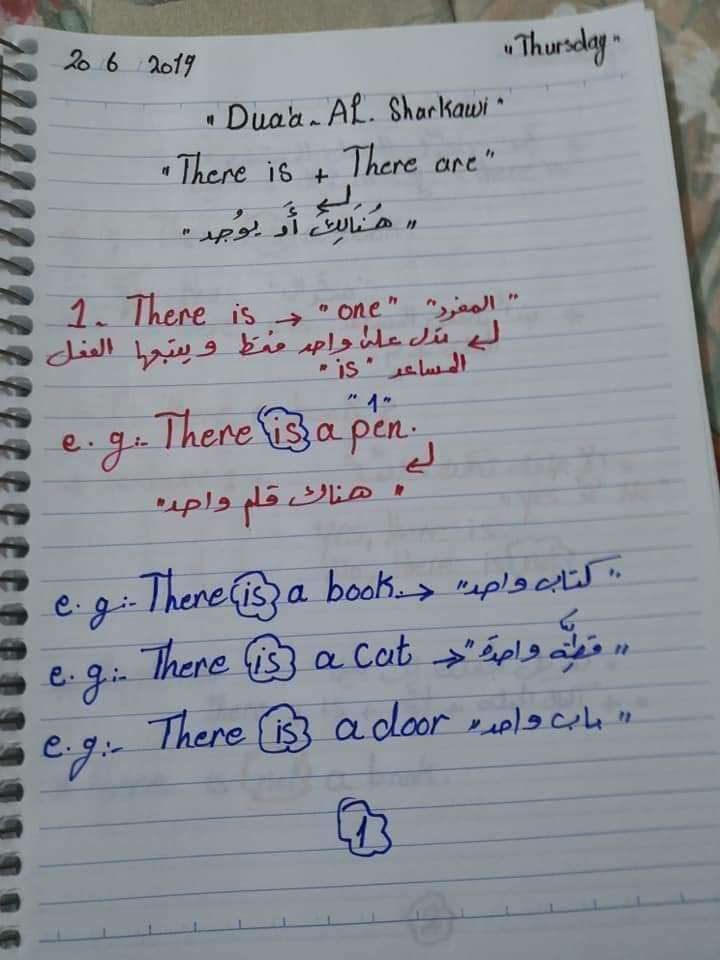 20 6 2019 "Thursday"
"Dua'a - Al. Sharkawi"
"There is + There are"
"هُنَالِكَ أَو يوُجد"
1. There is → "one" "المفرد"
تدل على واحد فقط ويتبعها الفعل
المساعد "is"
"1"
e.g:- There is a pen.
"هناك قلم واحد"
e.g:- There is a book. → "كتاب واحد"
e.g:- There is a cat → "قطِّة واحدة"
e.g:- There is a door "باب واحد"
1